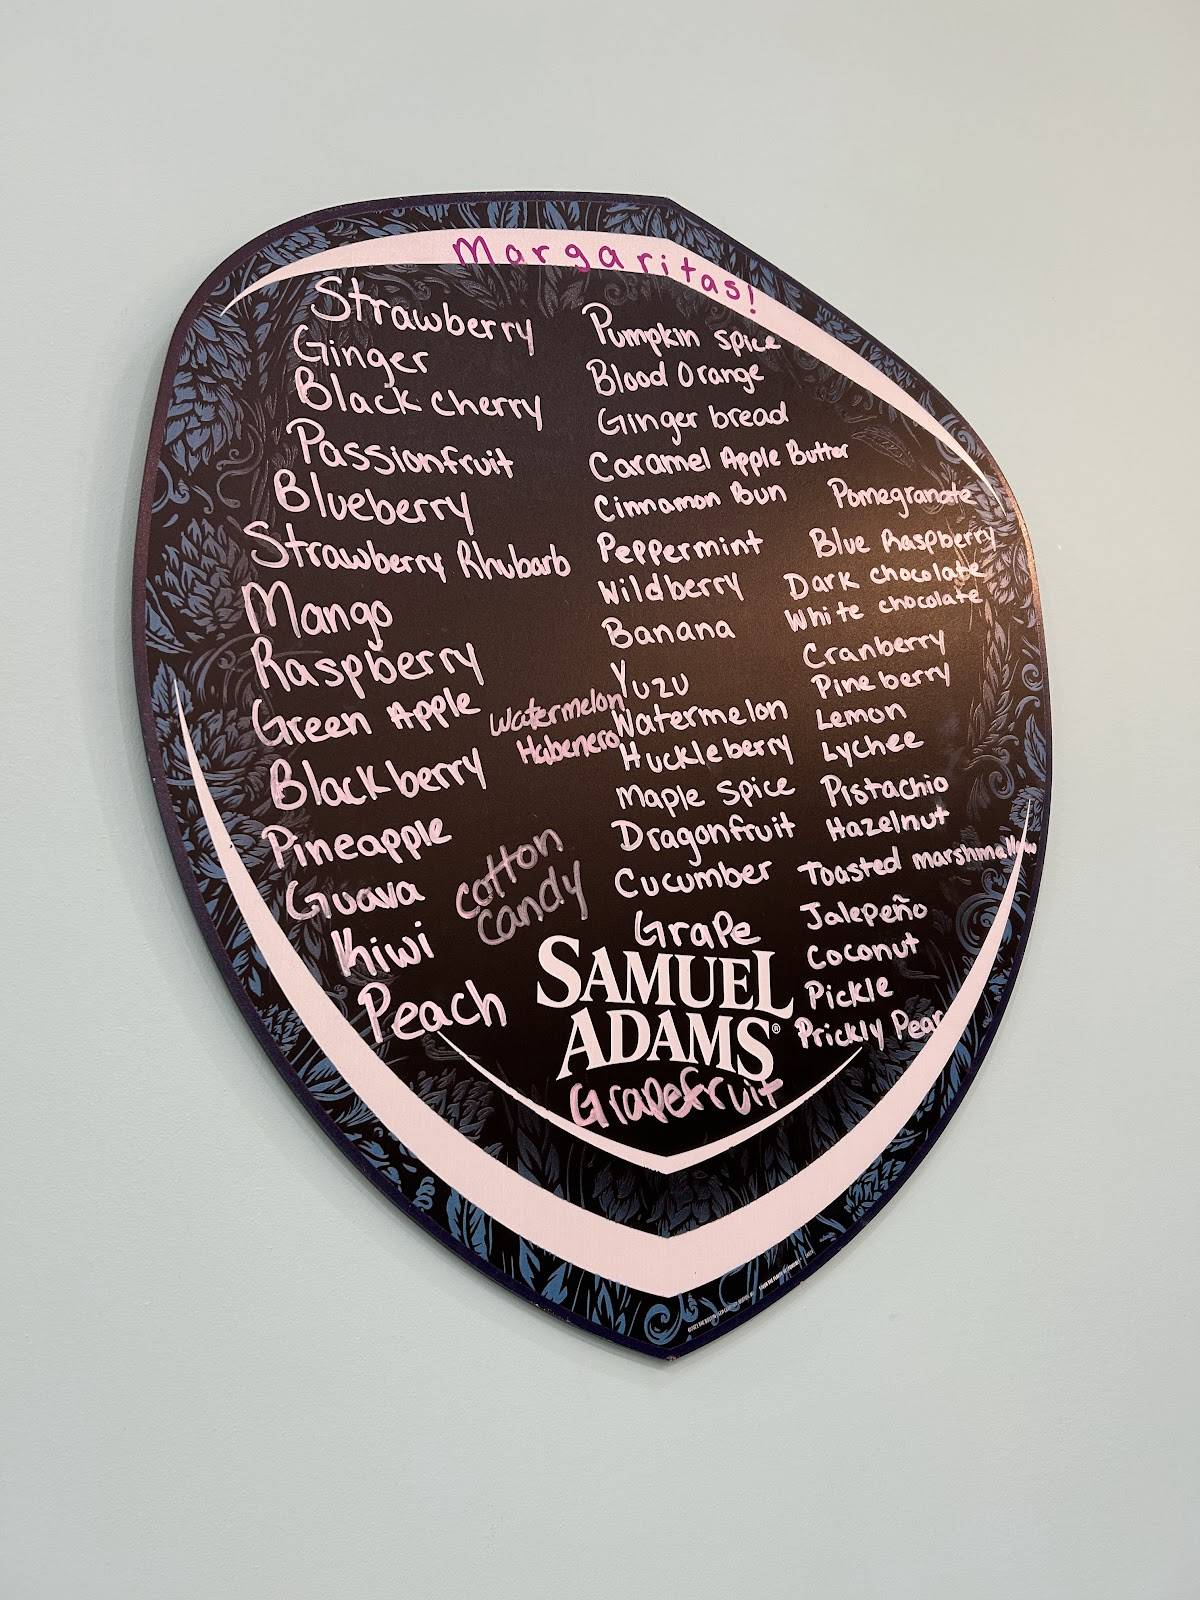 Margaritas!
Strawberry
Ginger
Black cherry
Passionfruit
Blueberry
Strawberry Rhubarb
Mango
Raspberry
Green Apple
Blackberry
Pineapple
Guava
Kiwi
Peach
Watermelon
Habenero
cotton
candy
Pumpkin spice
Blood Orange
Ginger bread
Caramel Apple Butter
Cinnamon Bun
Peppermint
Wildberry
Banana
Yuzu
Watermelon
Huckleberry
Maple Spice
Dragonfruit
Cucumber
Grape
Pomegranate
Blue Raspberry
Dark chocolate
White chocolate
Cranberry
Pineberry
Lemon
Lychee
Pistachio
Hazelnut
Toasted marshmellow
Jalepeño
Coconut
Pickle
Prickly Pear
SAMUEL
ADAMS®
Grapefruit